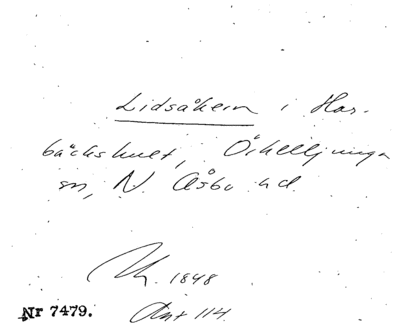 Lidsåkern i Har-
bäckshult, Örkelljunga
sn, N. Åsbo hd.
1848
Nr 7479. Akt 114.